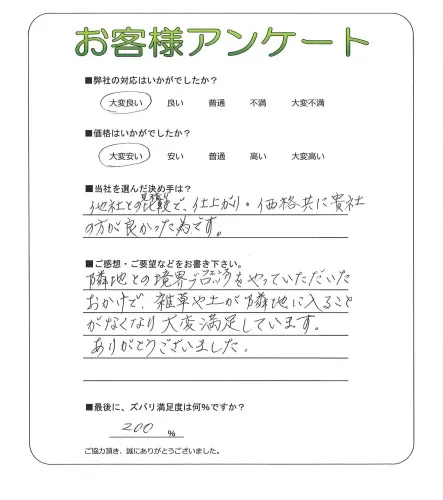 お客様アンケート
■弊社の対応はいかがでしたか?
大変良い 良い 普通 不満 大変不満
■価格はいかがでしたか?
大変安い 安い 普通 高い 大変高い
■当社を選んだ決め手は?
他社との見積り比較で、仕上がり・価格共に貴社
の方が良かった為です。
■ご感想・ご要望などをお書き下さい。
隣地との境界ブロックをやっていただいた
おかげで、雑草や土が隣地に入ること
がなくなり大変満足しています。
ありがとうございました。
■最後に、ズバリ満足度は何%ですか?
200 %
ご協力頂き、誠にありがとうございました。